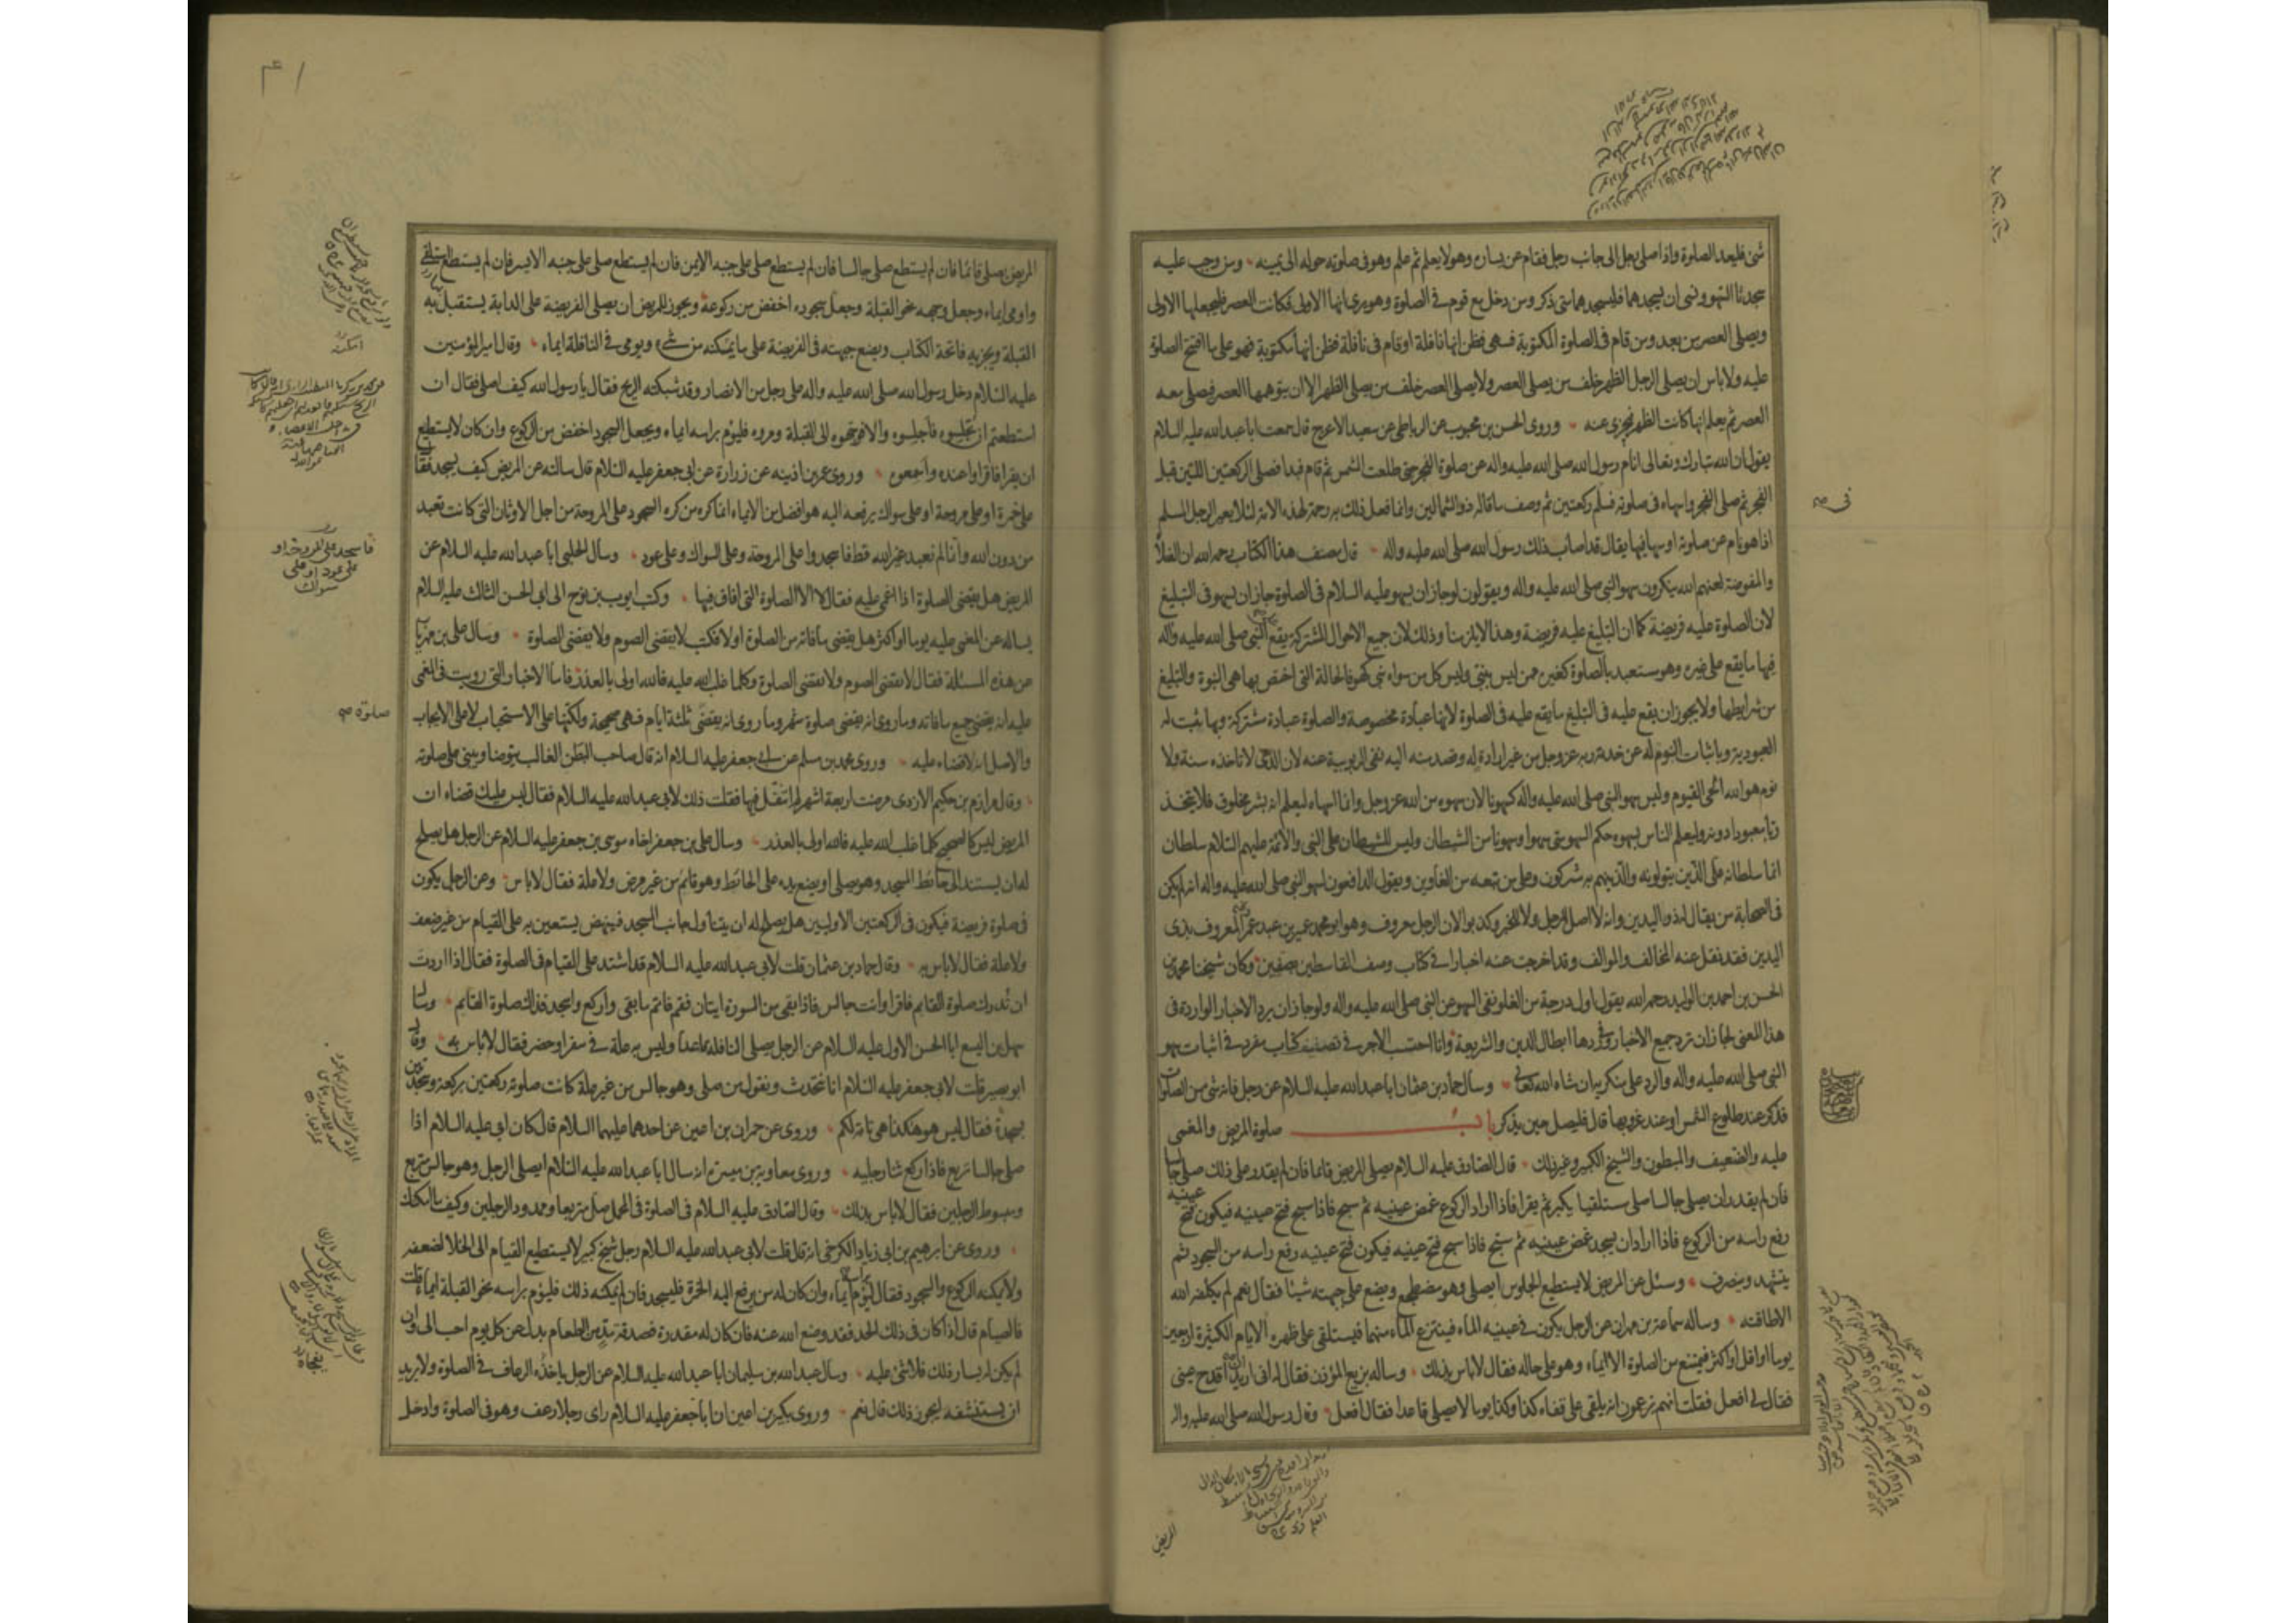 شئ فليعد الصلوة واذا صلى رجل الى جانب رجل فقام عن يساره وهو لا يعلم ثم علم وهو فى صلوته حوله الى يمينه ومن وجب عليه
سجدتا السهو ونسى ان يسجدهما فليسجدهما متى ذكر ومن دخل مع قوم فى الصلوة وهو يرى انها الاولى فكانت العصر فليجعلها الاولى
ويصلى العصر من بعد ومن قام فى الصلوة المكتوبة فسهى فظن انها نافلة او قام فى نافلة فظن انها مكتوبة فهو على ما افتتح الصلوة
عليه ولا باس ان يصلى الرجل الظهر خلف من يصلى العصر ولا يصلى العصر خلف من يصلى الظهر الا ان يتوهمها العصر فيصلى معه
العصر ثم يعلم انها كانت الظهر فتجزى عنه وروى الحسن بن محبوب عن الرباطى عن سعيد الاعرج قال سمعت ابا عبد الله عليه السلام
يقول ان الله تبارك وتعالى انام رسول الله صلى الله عليه واله عن صلوة الفجر حتى طلعت الشمس ثم قام فبدا فصلى الركعتين اللتين قبل
الفجر ثم صلى الفجر واسهاه فى صلوته فسلم فى ركعتين ثم وصف ما قاله ذو الشمالين وانما فعل ذلك به رحمة لهذه الامة لئلا يعير الرجل المسلم
اذا هو نام عن صلوته او سها فيها يقال قد اصاب ذلك رسول الله صلى الله عليه واله قال مصنف هذا الكتاب رحمه الله ان الغلاة
والمفوضة لعنهم الله ينكرون سهو النبى صلى الله عليه واله ويقولون لو جاز ان يسهو عليه السلام فى الصلوة جاز ان يسهو فى التبليغ
لان الصلوة عليه فريضة كما ان التبليغ عليه فريضة وهذا لا يلزمنا وذلك لان جميع الاحوال المشتركة يقع على النبى صلى الله عليه واله
فيها ما يقع على غيره وهو متعبد بالصلوة كغيره ممن ليس بنبى وليس كل من سواه بنبى كهو فالحالة التى اختص بها هى النبوة والتبليغ
من شرايطها ولا يجوز ان يقع عليه فى التبليغ ما يقع عليه فى الصلوة لانها عبادة مخصوصة والصلوة عبادة مشتركة وبها يثبت له
العبودية وباثبات النوم له عن خدمة ربه عز وجل من غير ارادة له وقصد منه اليه نفى الربوبية عنه لان الذى لا تاخذه سنة ولا
نوم هو الله الحى القيوم وليس سهو النبى صلى الله عليه واله كسهونا لان سهوه من الله عز وجل وانما اسهاه ليعلم انه بشر مخلوق فلا يتخذ
ربا معبودا دونه وليعلم الناس بسهوه حكم السهو متى سهوا وسهونا من الشيطان وليس للشيطان على النبى والائمة عليهم السلام سلطان
انما سلطانه على الذين يتولونه والذين هم به مشركون وعلى من تبعه من الغاوين ويقول الدافعون لسهو النبى صلى الله عليه واله انه لم يكن
فى الصحابة من يقال له ذو اليدين وانه لا اصل للرجل ولا للخبر وكذبوا لان الرجل معروف وهو ابو محمد عمير بن عبد عمرو المعروف بذى
اليدين فقد نقل عنه المخالف والموالف وقد اخرجت عنه اخبارا فى كتاب وصف القاسطين بصفين وكان شيخنا محمد بن
الحسن بن احمد بن الوليد رحمه الله يقول اول درجة من الغلو نفى السهو عن النبى صلى الله عليه واله ولو جاز ان يرد الاخبار الواردة فى
هذا المعنى لجاز ان ترد جميع الاخبار وفى ردها ابطال الدين والشريعة وانا احتسب الاجر فى تصنيف كتاب مفرد فى اثبات سهو
النبى صلى الله عليه واله والرد على منكريه ان شاء الله تعالى وسال حماد بن عثمان ابا عبد الله عليه السلام عن رجل فاته شئ من الصلوات
فذكر عند طلوع الشمس او عند غروبها قال فليصل حين يذكر باب صلوة المريض والمغمى
عليه والضعيف والمبطون والشيخ الكبير وغير ذلك قال الصادق عليه السلام يصلى المريض قائما فان لم يقدر على ذلك صلى جالسا
فان لم يقدر ان يصلى جالسا صلى مستلقيا يكبر ثم يقرا فاذا اراد الركوع غمض عينيه ثم سبح فاذا سبح فتح عينيه فيكون فتح عينيه
رفع راسه من الركوع فاذا اراد ان يسجد غمض عينيه ثم سبح فاذا سبح فتح عينيه فيكون فتح عينيه رفع راسه من السجود ثم
يتشهد وينصرف وسئل عن المريض لا يستطيع الجلوس ايصلى وهو مضطجع ويضع على جبهته شيئا فقال نعم لم يكلفه الله
الا طاقته وساله سماعة بن مهران عن الرجل يكون فى عينيه الماء فينتزع الماء منهما فيستلقى على ظهره الايام الكثيرة اربعين
يوما او اقل او اكثر فيمتنع من الصلوة الا ايماء وهو على حاله فقال لا باس بذلك وساله بزيع المؤذن فقال له انى اريد ان اقدح عينى
فقال لى افعل فقلت انهم يزعمون انه يلقى على قفاه كذا وكذا يوما لا يصلى قاعدا فقال افعل وقال رسول الله صلى الله عليه واله
المريض
المريض يصلى قائما فان لم يستطع صلى جالسا فان لم يستطع صلى على جنبه الايمن فان لم يستطع صلى على جنبه الايسر فان لم يستطع استلقى
واومى ايماء وجعل وجهه نحو القبلة وجعل سجوده اخفض من ركوعه ويجوز للمريض ان يصلى الفريضة على الدابة يستقبل به
القبلة ويجزيه فاتحة الكتاب ويضع جبهته فى الفريضة على ما يمكنه من شىء ويومى فى النافلة ايماء وقال امير المؤمنين
عليه السلام دخل رسول الله صلى الله عليه واله على رجل من الانصار وقد شبكته الريح فقال يا رسول الله كيف اصلى فقال ان
استطعتم ان تجلسوه فاجلسوه والا فوجهوه الى القبلة ومروه فليؤم براسه ايماء ويجعل السجود اخفض من الركوع وان كان لا يستطيع
ان يقرا فاقراوا عنده واسمعوه وروى عمر بن اذينه عن زرارة عن ابى جعفر عليه السلام قال سالته عن المريض كيف يسجد فقال
على خمرة او على مروحة او على سواك يرفعه اليه هو افضل من الايماء انما كره من كره السجود على المروحة من اجل الاوثان التى كانت تعبد
من دون الله وانا لم نعبد غير الله قط فاسجدوا على المروحة وعلى السواك وعلى عود وسال الحلبى ابا عبد الله عليه السلام عن
المريض هل يقضى الصلوة اذا اغمى عليه فقال لا الا الصلوة التى افاق فيها وكتب ايوب بن نوح الى ابى الحسن الثالث عليه السلام
يساله عن المغمى عليه يوما او اكثر هل يقضى ما فاته من الصلوة او لا فكتب لا يقضى الصوم ولا يقضى الصلوة وسال على بن مهزيار
عن هذه المسئلة فقال لا يقضى الصوم ولا يقضى الصلوة وكلما غلب الله عليه فالله اولى بالعذر فاما الاخبار التى رويت فى المغمى
عليه انه يقضى جميع ما فاته وما روى انه يقضى صلوة شهر وما روى انه يقضى ثلثة ايام فهى صحيحة ولكنها على الاستحباب لا على الايجاب
والاصل انه لا قضاء عليه وروى محمد بن مسلم عن ابى جعفر عليه السلام انه قال صاحب البطن الغالب يتوضا ويبنى على صلوته
وقال مرازم بن حكيم الازدى مرضت اربعة اشهر لم اتنفل فيها فقلت ذلك لابى عبد الله عليه السلام فقال ليس عليك قضاء ان
المريض ليس كالصحيح كلما غلب الله عليه فالله اولى بالعذر وسال على بن جعفر اخاه موسى بن جعفر عليه السلام عن الرجل هل يصلح
له ان يستند الى حائط المسجد وهو يصلى او يضع يده على الحائط وهو قائم من غير مرض ولا علة فقال لا باس وعن الرجل يكون
فى صلوة فريضة فيكون فى الركعتين الاوليين هل يصلح له ان يتناول جانب المسجد فينهض يستعين به على القيام من غير ضعف
ولا علة فقال لا باس به وقال حماد بن عثمان قلت لابى عبد الله عليه السلام قد اشتد على القيام فى الصلوة فقال اذا اردت
ان تدرك صلوة القايم فاقرا وانت جالس فاذا بقى من السورة ايتان فقم فاتم ما بقى واركع واسجد فذاك صلوة القايم وسال
سهل بن اليسع ابا الحسن الاول عليه السلام عن الرجل يصلى النافلة قاعدا وليس به علة فى سفر او حضر فقال لا باس به وقال
ابو بصير قلت لابى جعفر عليه السلام انا نتحدث ونقول من صلى وهو جالس من غير علة كانت صلوته ركعتين بركعة وسجدتين
بسجدة فقال ليس هو هكذا هى تامة لكم وروى عن حمران بن اعين عن احدهما عليهما السلام قال كان ابى عليه السلام اذا
صلى جالسا تربع فاذا ركع ثنا رجليه وروى معاوية بن ميسرة انه سال ابا عبد الله عليه السلام ايصلى الرجل وهو جالس متربع
ومبسوط الرجلين فقال لا باس بذلك وقال الصادق عليه السلام فى الصلوة فى المحمل صل متربعا وممدود الرجلين وكيف ما امكنك
وروى عن ابرهيم بن ابى زياد الكرخى انه قال قلت لابى عبد الله عليه السلام رجل شيخ كبير لا يستطيع القيام الى الخلا لضعفه
ولا يمكنه الركوع والسجود فقال ليؤم براسه ايماء وان كان له من يرفع اليه الخمرة فليسجد فان لم يمكنه ذلك فليؤم براسه نحو القبلة ايماء قلت
فالصيام قال اذا كان فى ذلك الحد فقد وضع الله عنه فان كان له مقدرة فصدقة مد من الطعام بدل عن كل يوم احب الى وان
لم يكن له يسار ذلك فلا شئ عليه وسال عبد الله بن سليمان ابا عبد الله عليه السلام عن الرجل ياخذه الرعاف فى الصلوة ولا يريد
ان يستنشفه ايجوز ذلك قال نعم وروى بكير بن اعين ان ابا جعفر عليه السلام راى رجلا رعف وهو فى الصلوة وادخل
فاسجد على المروحة او
على عود او على
سواك
صلوة صح